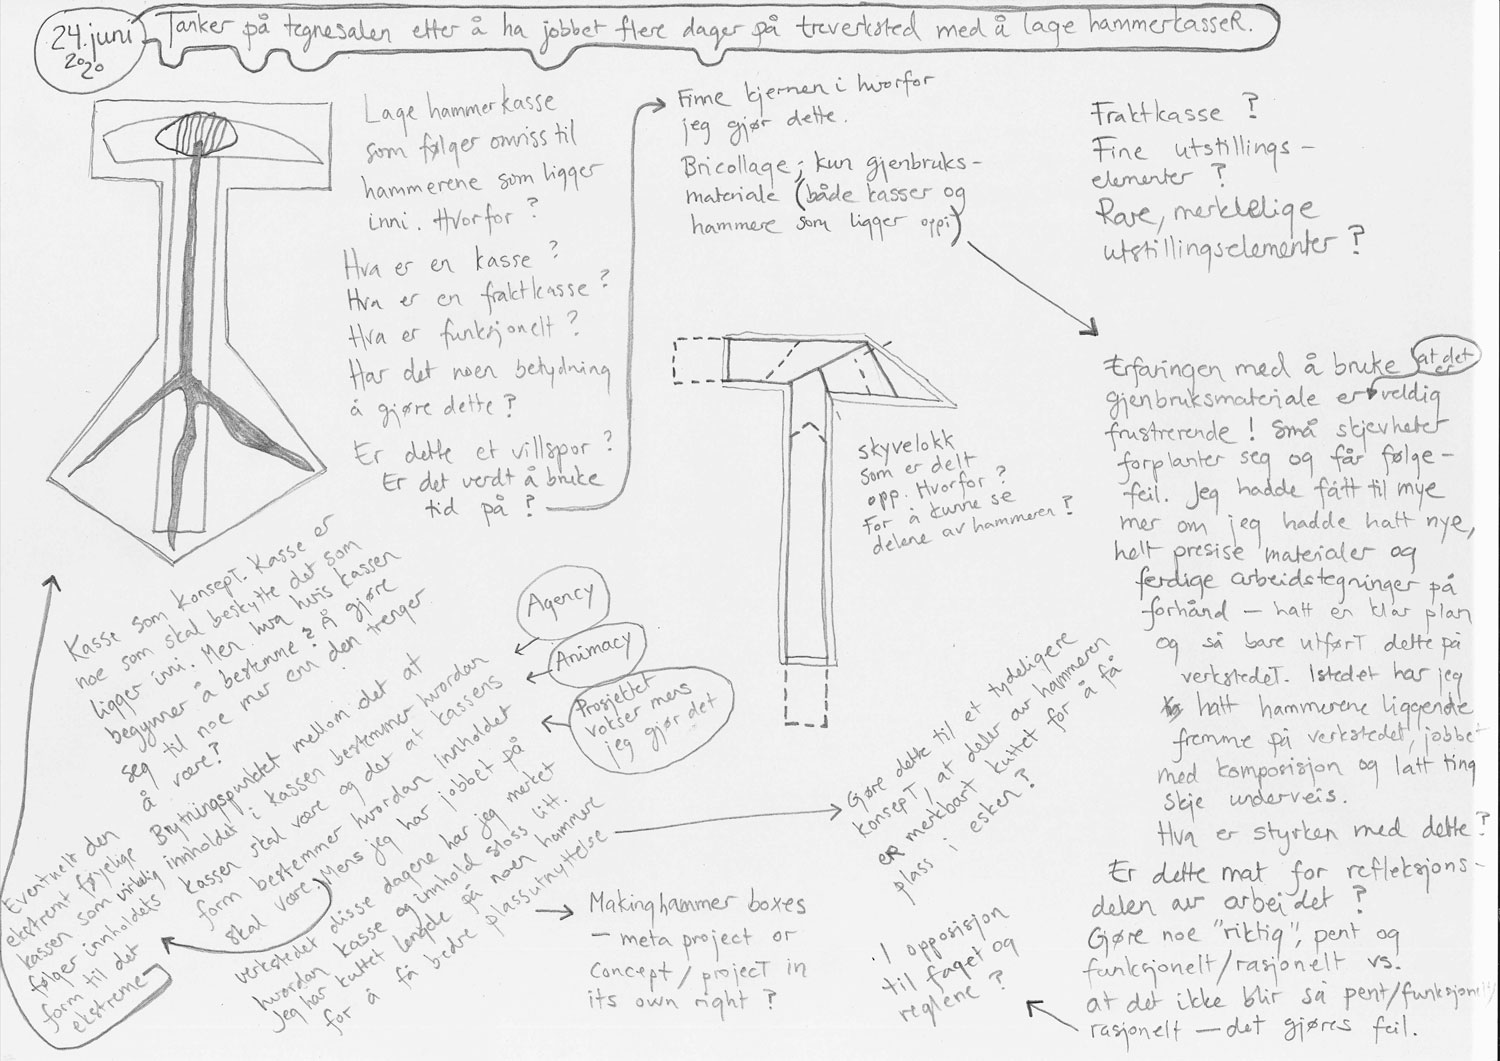 24. juni
2020
Tanker på tegnesalen etter å ha jobbet flere dager på treverksted med å lage hammerkasseR.
Lage hammerkasse
som følger omriss til
hammerene som ligger
inni. Hvorfor?
Hva er en kasse?
Hva er en fraktkasse?
Hva er funksjonelt?
Har det noen betydning
å gjøre dette?
Er dette et villspor?
Er det verdt å bruke
tid på?
Finne kjernen i hvorfor
jeg gjør dette.
Bricollage; kun gjenbruks-
materiale (både kasser og
hammere som ligger oppi)
Fraktkasse?
Fine utstillings-
elementer?
Rare, merkelige
utstillingselementer?
skyvelokk
som er delt
opp. Hvorfor?
For å kunne se
delene av hammeren?
Erfaringen med å bruke
gjenbruksmateriale er veldig
at det
er
frustrerende! Små skjevheter
forplanter seg og får følge-
feil. Jeg hadde fått til mye
mer om jeg hadde hatt nye,
helt presise materialer og
ferdige arbeidstegninger på
forhånd – hatt en klar plan
og så bare utførT dette på
verkstedeT. Istedet har jeg
hatt hammerene liggende
fremme på verkstedet, jobbet
med komposisjon og latt ting
skje underveis.
Hva er styrken med dette?
Er dette mat for refleksjons-
delen av arbeidet?
Gjøre noe "riktig", pent og
funksjonelt/rasjonelt vs.
at det ikke blir så pent/funksjonelt/
rasjonelt – det gjøres feil.
I opposisjon
til faget og
reglene?
Kasse som konsepT. Kasse er
noe som skal beskytte det som
ligger inni. Men hva hvis kassen
begynner å bestemme? Å gjøre
seg til noe mer enn den trenger
å være?
Agency
Animacy
Prosjektet
vokser mens
jeg gjør det
Brytningspunktet mellom det at
innholdet i kassen bestemmer hvordan
kassen skal være og det at kassens
form bestemmer hvordan innholdet
skal være. Mens jeg har jobbet på
verkstedet disse dagene har jeg merket
hvordan kasse og innhold sloss litt.
Jeg har kuttet lengde på noen hammere
for å få bedre plassutnyttelse
Eventuelt den
ekstremt føyelige
kassen som virkelig
følger innholdets
form til det
ekstreme
Gjøre dette til et tydeligere
konsepT, at deler av hammeren
eR merkbart kuttet for å få
plass i esken?
Making hammer boxes
– meta project or
concept/projecT in
its own right?